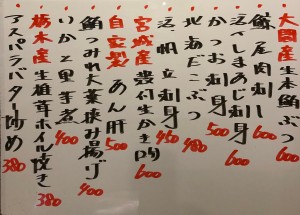 大間産生本鮪ぶつ 600
鯨尾肉刺し 600
活〆しまあじ刺身 600
かつお刺身 500
北海だこぶつ 480
活帆立刺身 450
宮城産殻付生かき 600
自家製あん肝 500
鮪つみれ大葉挟み揚げ 400
いかと里芋煮 400
栃木産生椎茸ホイル焼き 380
アスパラバター炒め 380